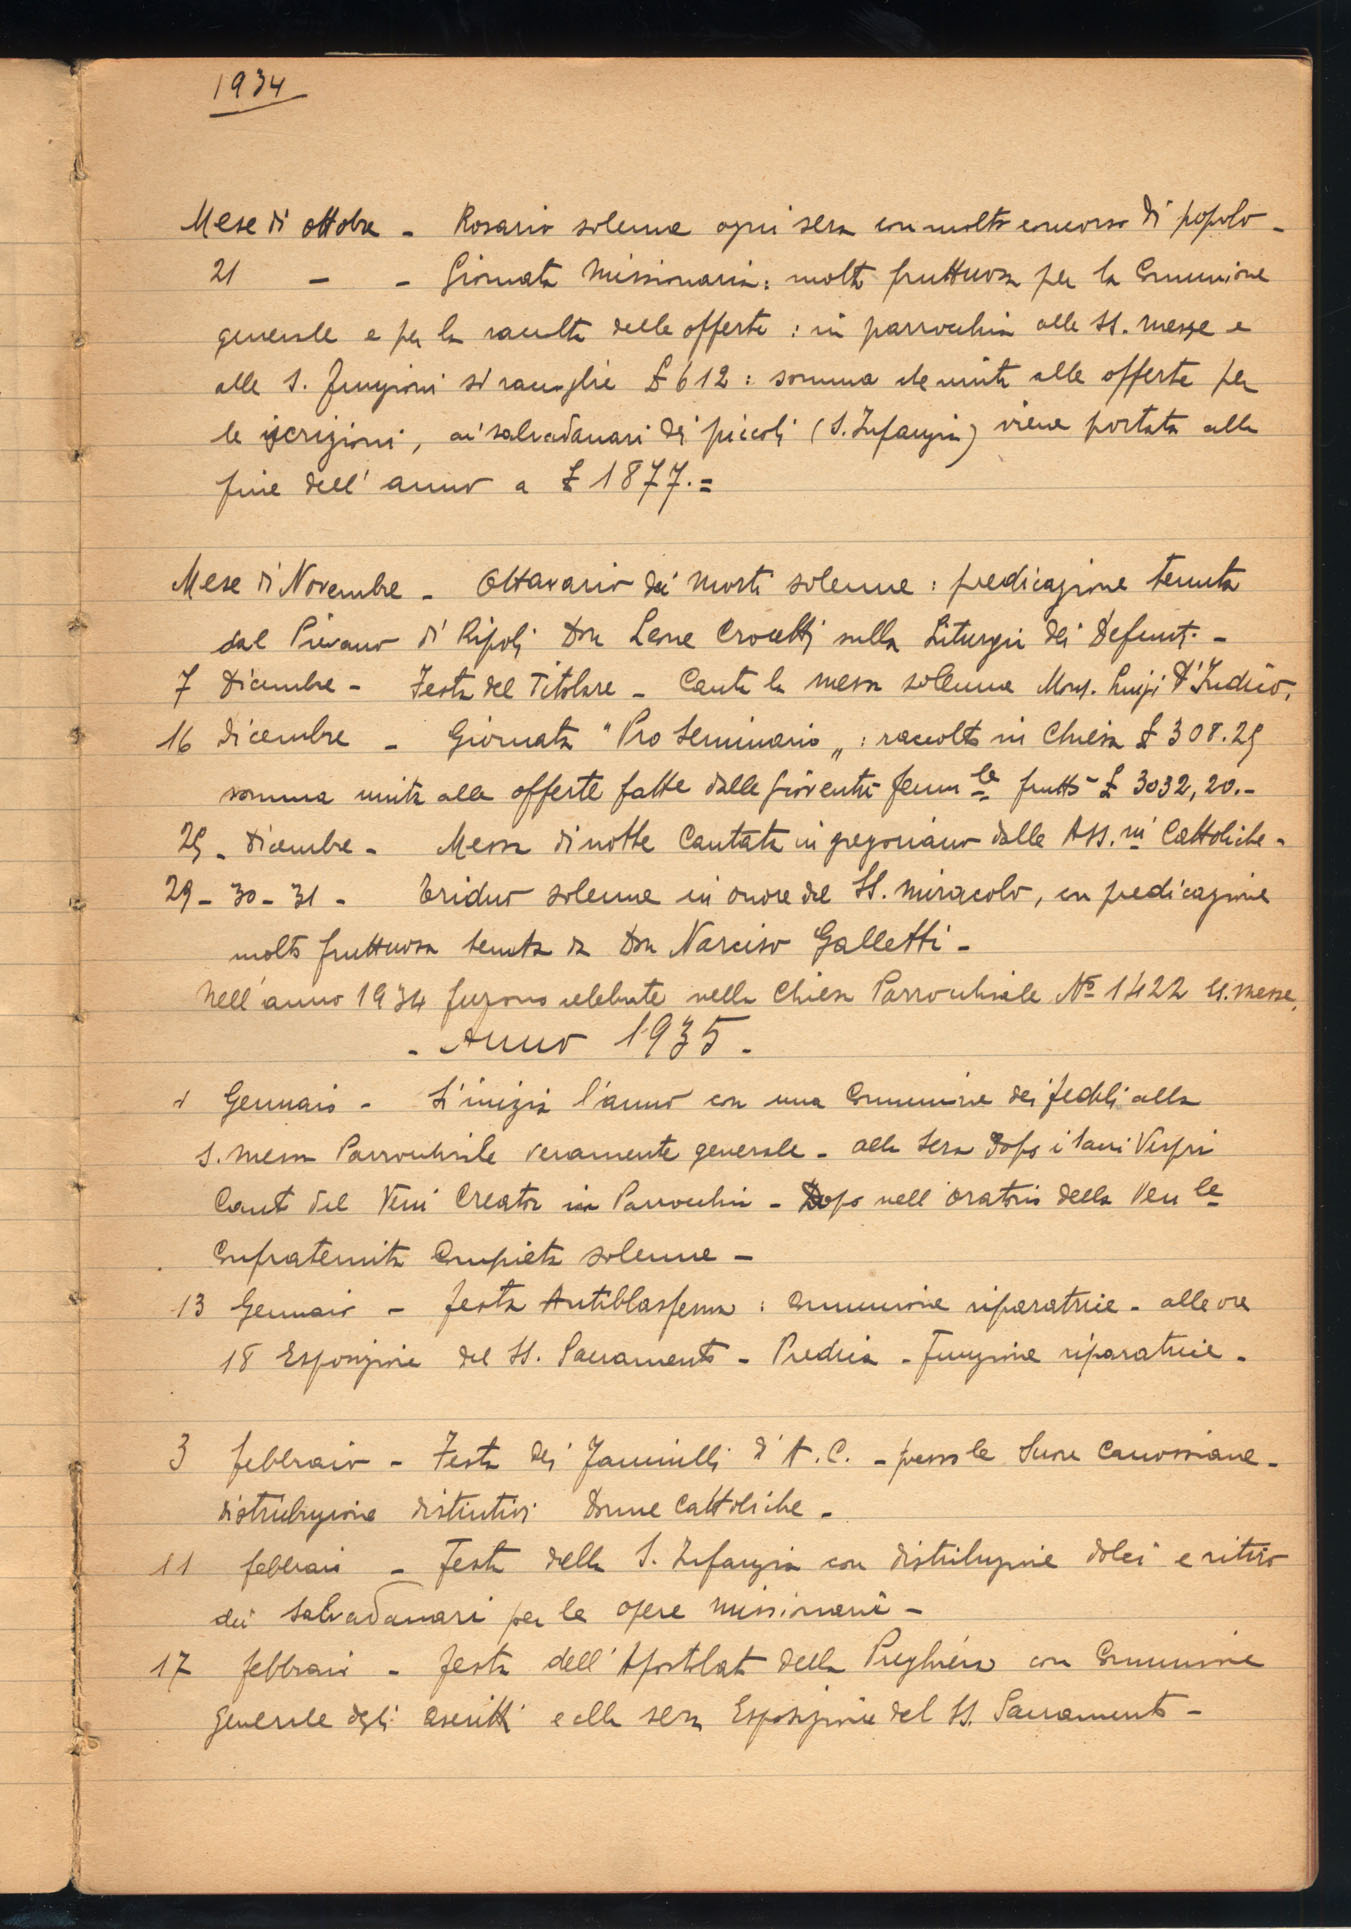 1934
Mese di ottobre - Rosario solenne ogni sera con molto concorso di popolo -
21 - - Giornata Missionaria: molto fruttuosa per la Comunione
generale e per la raccolta delle offerte : in parrocchia alle SS. messe e
alle S. funzioni si raccoglie £ 612 : somma che unita alle offerte per
le iscrizioni, ai salvadanari dei piccoli (S. Infanzia) viene portata alla
fine dell' anno a £ 1877.=
Mese di Novembre - Ottavario dei Morti solenne : predicazione tenuta
dal Pievano di Ripoli Don Leone Crocetti sulla Liturgia dei Defunti -
7 Dicembre - Festa del Titolare - Canta la messa solenne Mons. Luigi D'Indico.
16 dicembre - Giornata "Pro Seminario„ : raccolto in Chiesa £ 308.25
somma unita alle offerte fatte dalla Gioventù femm le fruttò £ 3032,20.-
25 - Dicembre - Messa di notte Cantata in gregoriano dalle Ass. ni Cattoliche -
29 - 30 - 31 - Triduo solenne in onore del SS. Miracolo, con predicazione
molto fruttuosa tenuta da Don Narciso Galletti -
Nell'anno 1934 furono celebrate nella Chiesa Parrocchiale No 1422 SS. messe.
- Anno 1935 -
1 Gennaio - S'inizia l'anno con una Comunione dei fedeli alla
S. messa Parrocchiale veramente generale - alla sera dopo i Sacri Vespri
Canto del Veni Creator in Parrocchia - Dopo nell'oratorio della Ven le
Confraternita Compieta solenne -
13 Gennaio - festa Antiblasfema : comunione riparatrice - alle ore
18 Esposizione del SS. Sacramento - Predica - Funzione riparatrice -
3 febbraio - Festa dei Fanciulli d'A.C. - presso le Suore Canossiane -
distribuzione distintivi Donne Cattoliche -
11 febbraio - Festa della S. Infanzia con distribuzione dolci e ritiro
dei Salvadanari per le opere missionarie -
17 febbraio - festa dell'Apostolato della Preghiera con Comunione
Generale degli ascritti e alla sera Esposizione del SS. Sacramento -